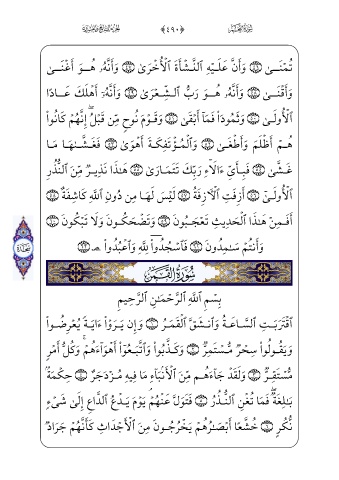 سُورَةُ النَّجْمِ ﴿٤٩٠﴾ الجُزءُ السَّابِعُ وَالعِشْرُون
تُمْنَىٰ ۝ وَأَنَّ عَلَيْهِ ٱلنَّشْأَةَ ٱلْأُخْرَىٰ ۝ وَأَنَّهُۥ هُوَ أَغْنَىٰ
وَأَقْنَىٰ ۝ وَأَنَّهُۥ هُوَ رَبُّ ٱلشِّعْرَىٰ ۝ وَأَنَّهُۥٓ أَهْلَكَ عَادًا
ٱلْأُولَىٰ ۝ وَثَمُودًا فَمَآ أَبْقَىٰ ۝ وَقَوْمَ نُوحٍ مِّن قَبْلُ ۖ إِنَّهُمْ كَانُوا۟
هُمْ أَظْلَمَ وَأَطْغَىٰ ۝ وَٱلْمُؤْتَفِكَةَ أَهْوَىٰ ۝ فَغَشَّىٰهَا مَا
غَشَّىٰ ۝ فَبِأَىِّ ءَالَآءِ رَبِّكَ تَتَمَارَىٰ ۝ هَـٰذَا نَذِيرٌ مِّنَ ٱلنُّذُرِ
ٱلْأُولَىٰٓ ۝ أَزِفَتِ ٱلْـَٔازِفَةُ ۝ لَيْسَ لَهَا مِن دُونِ ٱللَّهِ كَاشِفَةٌ ۝
أَفَمِنْ هَـٰذَا ٱلْحَدِيثِ تَعْجَبُونَ ۝ وَتَضْحَكُونَ وَلَا تَبْكُونَ ۝
وَأَنتُمْ سَـٰمِدُونَ ۝ فَٱسْجُدُوا۟ لِلَّهِ وَٱعْبُدُوا۟ ۩ ۝
سجدة
سُورَةُ القَمَرِ
بِسْمِ ٱللَّهِ ٱلرَّحْمَـٰنِ ٱلرَّحِيمِ
ٱقْتَرَبَتِ ٱلسَّاعَةُ وَٱنشَقَّ ٱلْقَمَرُ ۝ وَإِن يَرَوْا۟ ءَايَةً يُعْرِضُوا۟
وَيَقُولُوا۟ سِحْرٌ مُّسْتَمِرٌّ ۝ وَكَذَّبُوا۟ وَٱتَّبَعُوٓا۟ أَهْوَآءَهُمْ ۚ وَكُلُّ أَمْرٍ
مُّسْتَقِرٌّ ۝ وَلَقَدْ جَآءَهُم مِّنَ ٱلْأَنۢبَآءِ مَا فِيهِ مُزْدَجَرٌ ۝ حِكْمَةٌۢ
بَـٰلِغَةٌ ۖ فَمَا تُغْنِ ٱلنُّذُرُ ۝ فَتَوَلَّ عَنْهُمْ ۘ يَوْمَ يَدْعُ ٱلدَّاعِ إِلَىٰ شَىْءٍ
نُّكُرٍ ۝ خُشَّعًا أَبْصَـٰرُهُمْ يَخْرُجُونَ مِنَ ٱلْأَجْدَاثِ كَأَنَّهُمْ جَرَادٌ